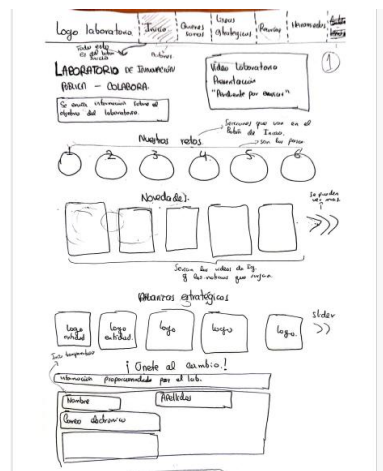 Logo laboratorio
Inicio
Quienes somos
Líneas estratégicas
Retos
Herramientas
1
LABORATORIO DE INNOVACIÓN
PÚBLICA - COLABORA.
Se envía información sobre el
objetivo del laboratorio.
Video Laboratorio
Presentación
"Pendiente por enviar"
Secciones que van en el
Botón de Inicio.
Nuestros retos
son los pasos
1 2 3 4 5 6
Novedades.
Se pueden
ver mas
Serían los videos de
y las noticias que surjan.
Alianzas estratégicas
slider
Logo entidad
Logo entidad.
Logo
Logo
Logo.
¡Únete al cambio.!
información proporcionada por el lab.
Nombre
Apellidos
Correo electronico